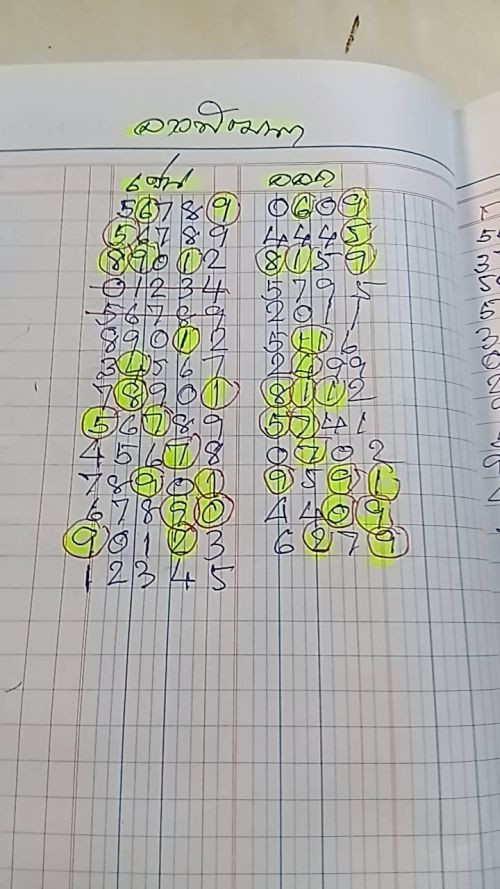 เด่น ออก
56789 0609
56789 4445
89012 8159
01234 5795
56789 2011
89012 5416
34567 2499
78901 8112
56789 5741
45678 0702
78901 9591
67890 4409
90123 6279
12345